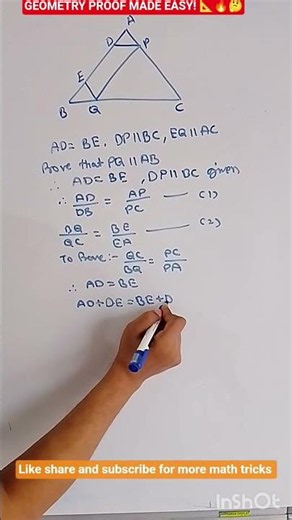 GEOMETRY PROOF MADE EASY! 📐🔥🤔
A
D P
E
B Q C
AD = BE, DP || BC, EQ || AC
Prove that PQ || AB
∴ AD = BE, DP || BC given
∴ AD/DB = AP/PC — (1)
BQ/QC = BE/EA — (2)
To Prove:- QC/BQ = PC/PA
∴ AD = BE
AD + DE = BE + D
Like share and subscribe for more math tricks
InShOt